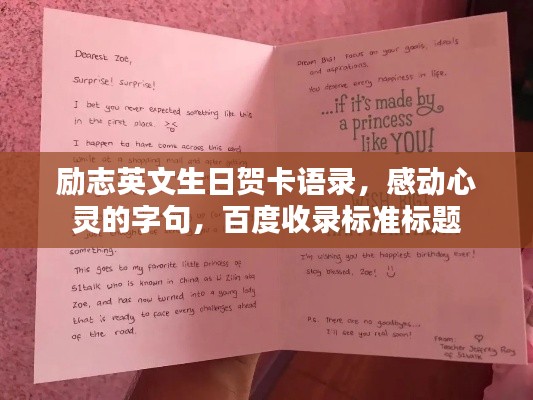 Dearest Zoe,
Surprise! surprise!
I bet you never expected something like this
in the first place. >_<
I happen to have come across this card
while at a shopping mall and after
励志英文生日贺卡语录，感动心
灵的字句，百度收录标准标题
something.
This goes to my favorite little princess of
51talk who is known in China as Li Zilin aka
Zoe, and has now turned into a young lady
that is ready to face every challenges ahead
of the road.
Dream Big! Focus on your goals, ideals
and aspirations.
You deserve every happiness in life.
...if it's made by
a princess
like YOU!
WISH BIG!
I'm wishing you the happiest birthday ever!
Stay blessed, Zoe! :)
P.s. There are no goodbyes...
I'll see you real soon!
From:
Teacher
of 51talk